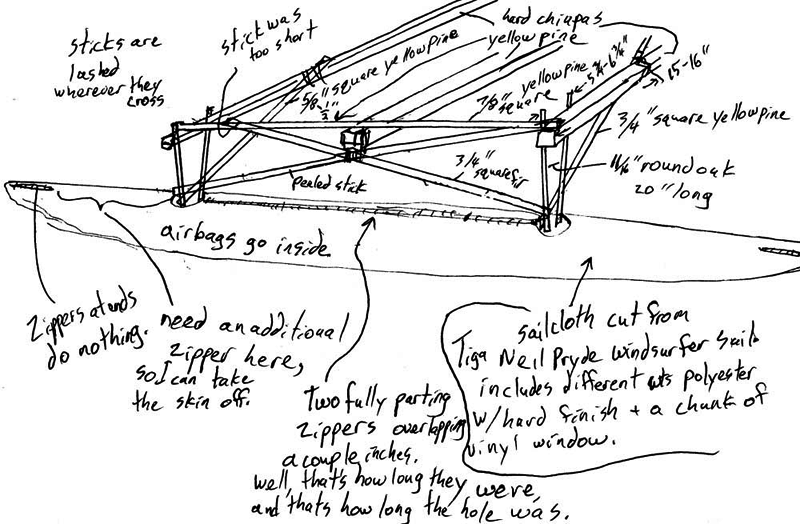 sticks are
lashed
wherever they
cross
stick was
too short
hard chiapas
yellow pine
5/8" square yellow pine
1/2"
yellow pine
7/8" square
15-16"
3/4" square yellow pine
3/4"
square fir
peeled stick
11/16" round oak
20" long
airbags go inside
Zippers at ends
do nothing.
need an additional
zipper here,
so I can take
the skin off.
Two fully parting
zippers overlapping
a couple inches.
well, that's how long they were,
and thats how long the hole was.
sailcloth cut from
Tiga Neil Pryde windsurfer sail
includes different wts polyester
w/hard finish + a chunk of
vinyl window.